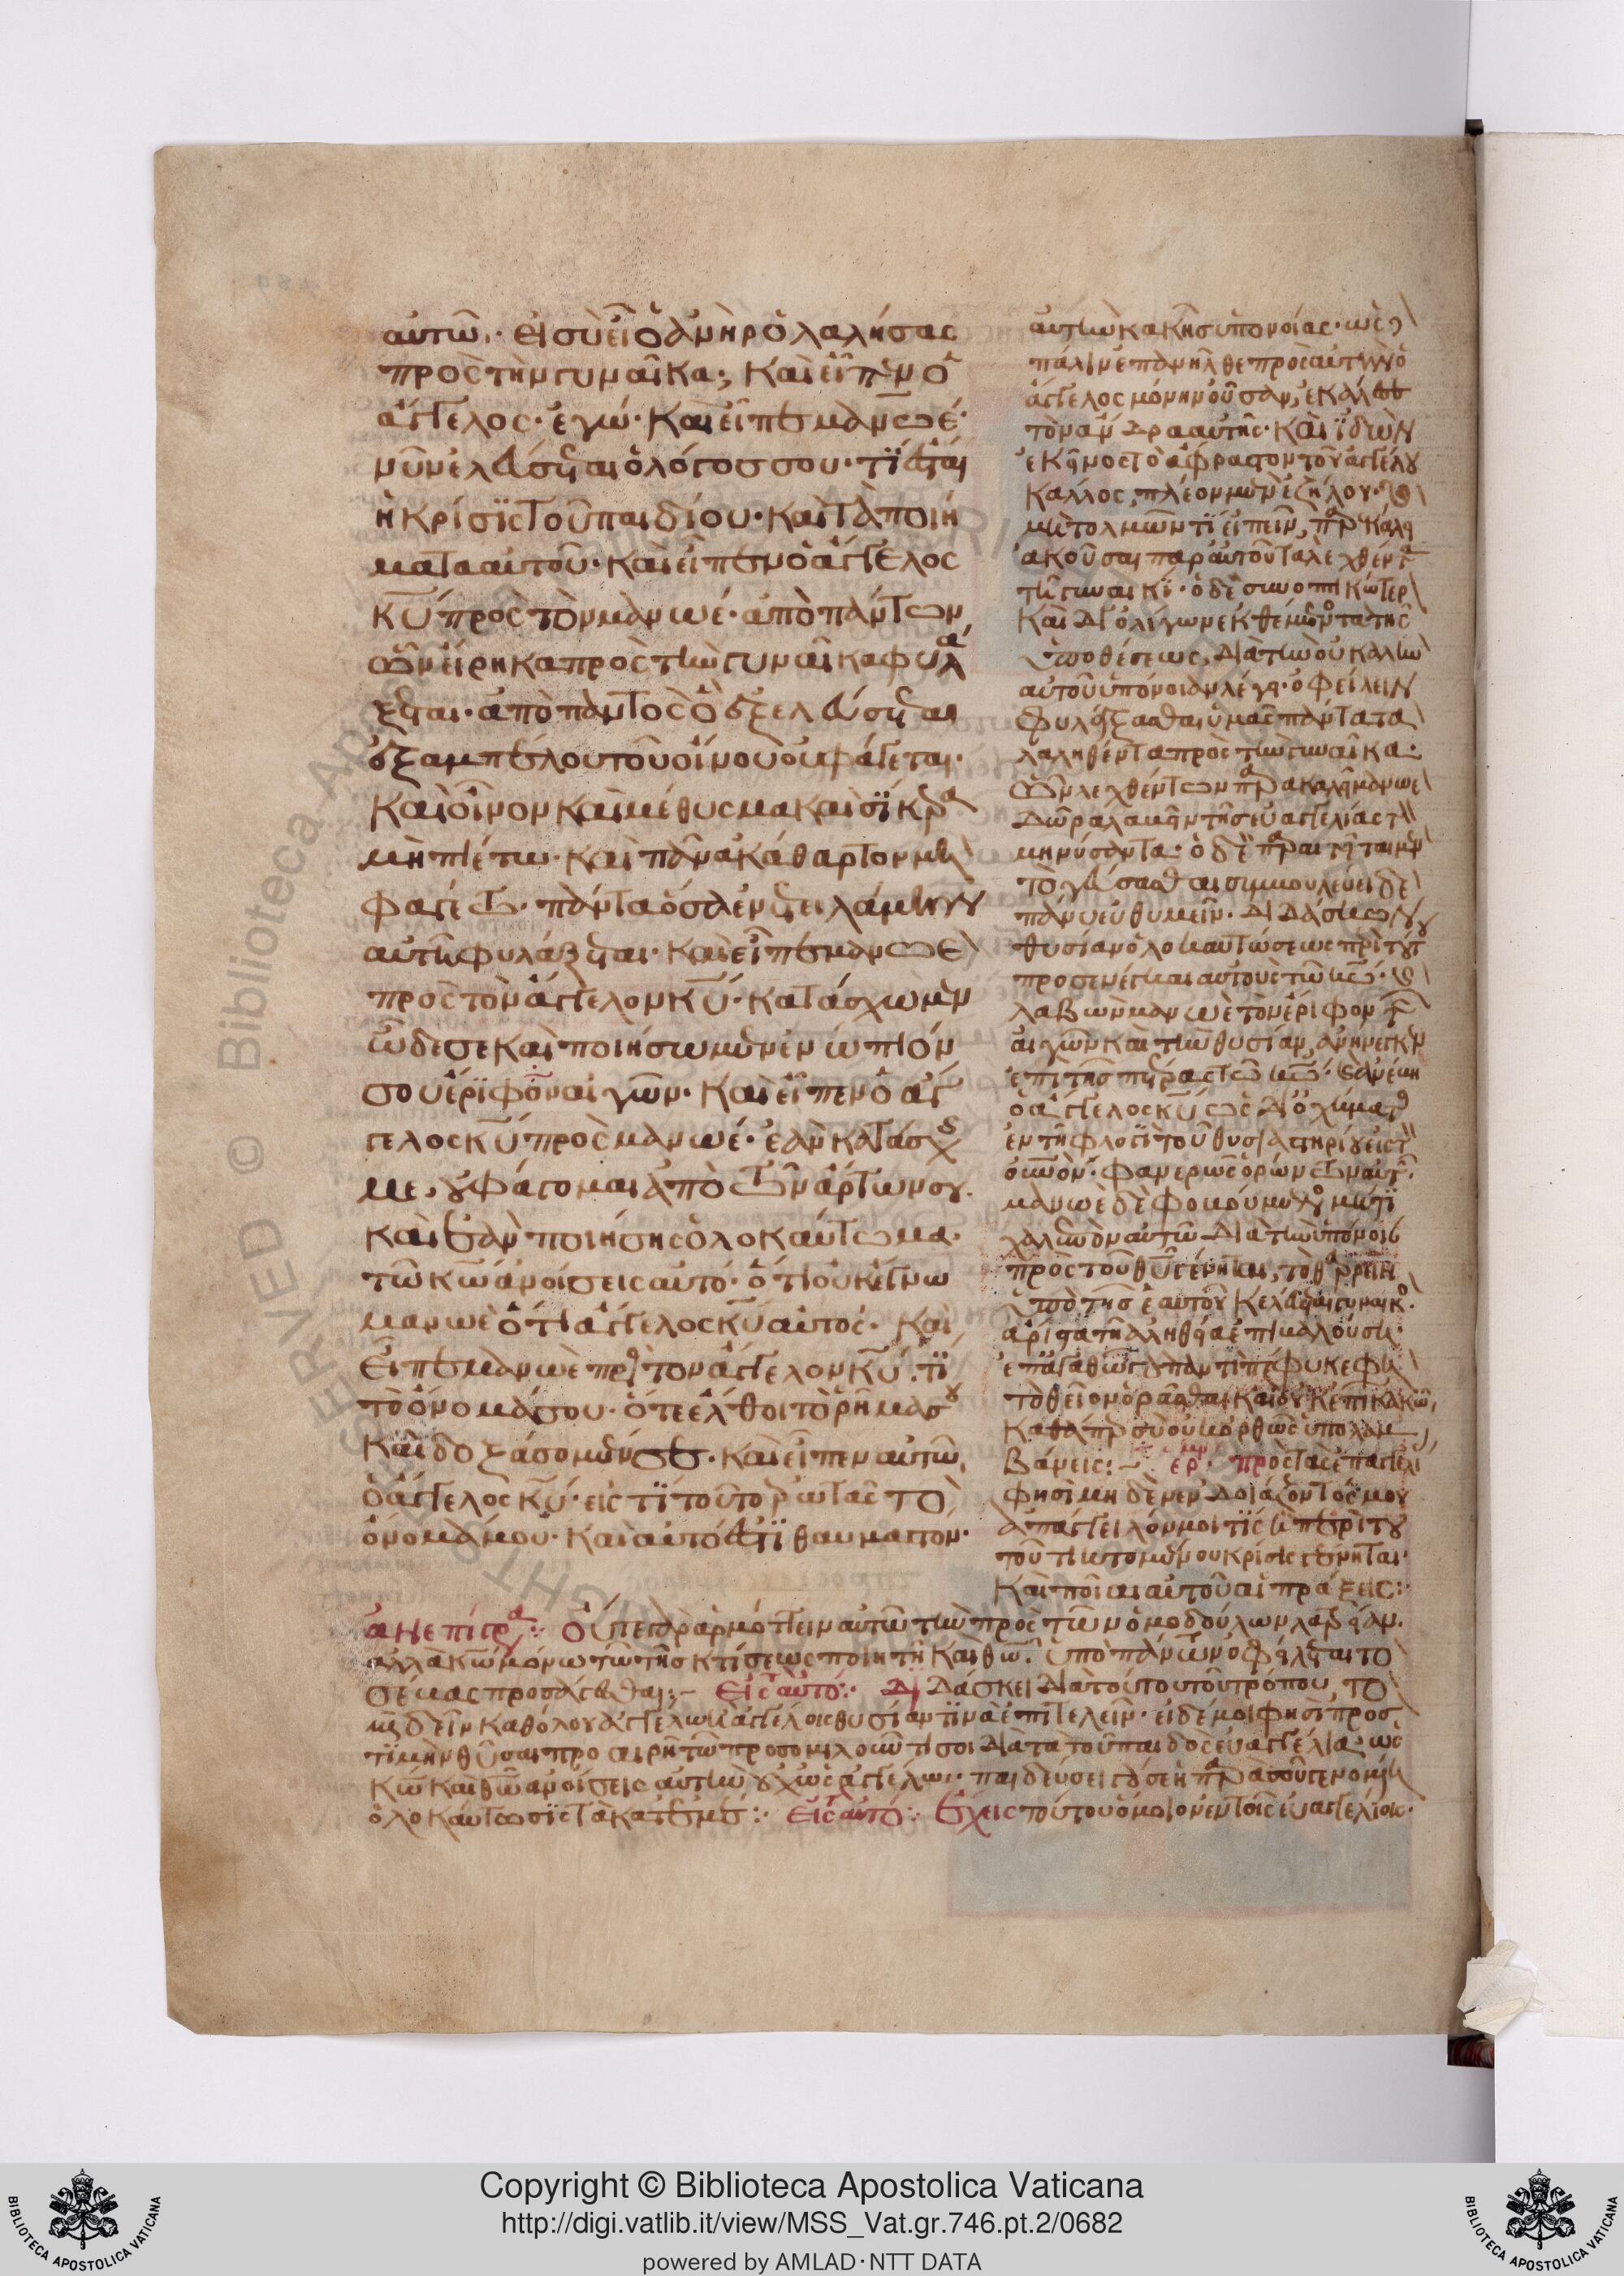 αὐτῶ· εἰ σὺ εἶ ὁ ἀνὴρ ὁ λαλήσας
πρὸς τὴν γυναῖκα; καὶ εἶπεν ὁ
ἄγγελος· ἐγώ· καὶ εἶπε μανωέ·
νῦν ἐλεύσεται ὁ λόγος σου· τί ἔσται
ἡ κρίσις τοῦ παιδίου· καὶ τὰ ποιή
ματα αὐτοῦ· καὶ εἶπεν ὁ ἄγγελος
κυ πρὸς τὸν μανωέ· ἀπὸ πάντων
ὧν εἴρηκα πρὸς τὴν γυναῖκα φυλά
ξεται· ἀπὸ παντὸς ὃ ἐξελεύσεται
ἐξ ἀμπέλου τοῦ οἴνου οὐ φάγεται·
καὶ οἶνον καὶ μέθυσμα καὶ σίκερα
μὴ πιέτω· καὶ πᾶν ἀκάθαρτον μὴ
φαγέτω· πάντα ὅσα ἐντει λάμην
αὐτῆ φυλάξεται· καὶ εἶπε μανωε
πρὸς τὸν ἄγγελον κυ· κατάσχωμεν
ὧδε σε καὶ ποιήσωμεν ἐνώπιόν
σου ἔριφον αἰγῶν· καὶ εἶπεν ὁ ἄγ
γελος κυ πρὸς μανωέ· ἐὰν κατάσχης
με, οὐ φάγομαι ἀπὸ τῶν ἄρτων σου·
καὶ ἐὰν ποιήσης ὁλοκαύτωμα·
τῶ κω ἀνοίσεις αὐτό· ὅτι οὐκ ἔγνω
μανωὲ ὅτι ἄγγελος κυ αὐτός· καὶ
εἶπε μανωὲ πρὸς τὸν ἄγγελον κυ· τί
τὸ ὄνομά σου· ὅτε ἔλθοι τὸ ῥῆμά σου
καὶ δοξάσομέν σε· καὶ εἶπεν αὐτῶ
ὁ ἄγγελος κυ· εἰς τί τοῦτο ἐρωτᾶς τὸ
ὄνομά μου· καὶ αὐτό ἐστι θαυμαστόν·
πάλιν ἐπανῆλθε πρὸς αὐτὴν ὁ
ἄγγελος μόνην οὖσαν, ἐκάλει
τὸν ἄνδρα αὐτῆς· καὶ ἰδὼν
ἐκεῖνος τὸ ἄφραστον τοῦ ἀγγέλου
κάλλος, πλέον μὲν ἐζήλου·
μὴ τολμῶν τι εἰπεῖν, παρεκάλει
ἀκοῦσαι παρ' αὐτοῦ τὰ λεχθέντα
τῆ γυναικί· ὁ δὲ σιωπικώτερ
καὶ δι' ὀλίγων ἐκθέμενος τὰ τῆς
ὑποθέσεως, διὰ τὴν οὐ καλὴν
αὐτοῦ ὑπόνοιαν λέγει· ὀφείλειν
φυλάξασθαι ὑμᾶς πάντα τὰ
λαληθέντα πρὸς τὴν γυναῖκα·
ὧν λεχθέντων παρακαλεῖ μανωὲ
δῶρα λαβεῖν τῆς εὐαγγελίας τ
μηνύσαντα· ὁ δὲ παραιτεῖται μὲν
τὸ γεύσασθαι συμβουλεύει δὲ
πάνυ εὐθυμεῖν· διδάσκων
θυσίαν ὁλοκαυτώσεως περὶ τούτου
προσενέγκαι αὐτοὺς τῶ κω·
λαβὼν μανωὲ τὸν ἔριφον τῶν
αἰγῶν καὶ τὴν θυσίαν, ἀνήνεγκεν
ἐπὶ τῆς πέτρας τῶ κω· ἀνέβη
ὁ ἄγγελος κυ ὡς δι' ὀχήματος
ἐν τῆ φλογὶ τοῦ θυσιαστηρίου εἰς τ
οὐνον· φανερῶς ὁρώντων αὐτῶν·
μανωὲ δὲ φοβούμενος μή τι
χαλεπὸν αὐτῶ διὰ τὴν ὑπόνοιαν
πρὸς τοῦ θυ γένηται, τὸ θαρρεῖν
ὑπὸ τῆς ἑαυτοῦ κελεύεται γυναικός·
ἐπ' ἀγαθῶ παντὶ πέφυκε φη
τὸ θεῖον ὁρᾶσθαι καὶ οὐκ ἐπὶ κακῶ,
καθάπερ σὺ οὐκ ὀρθῶς ὑπολαμ
βάνεις:– πρὸς τὰς ἐπαγγελί
φησὶ μηδὲν ἐνδοιάζοντός μου
ἀπάγγειλόν μοι τίς ἡ περὶ τού
του τικτομένου κρίσις γένηται·
καὶ ποῖαι αὐτοῦ αἱ πράξεις:·
ἀνεπίγρα:· Οὔπετο ἁρμόττειν αὐτῶ τὴν πρὸς τῶν ὁμοδούλων λαβεῖν.
ἀλλὰ κω μόνω τῶ τῆς κτίσεως ποιητῆ καὶ θω· ὑπὸ πάντων ὀφείλεται τὸ
σέβας προσάγεσθαι:– Εἰς αὐτό:· Διδάσκει διὰ τούτου τοῦ τρόπου, τὸ
μὴ δεῖν καθόλου ἀγγέλω ἢ ἀγγέλοις θυσίαν τινὰ ἐπιτελεῖν· εἰ δέ μοι φησὶ πρὸς
τιμὴν θῦσαι προαιρῆ τῶ προσομιλοῦντί σοι διὰ τὰ τοῦ παιδὸς εὐαγγέλια, ὡς
κω καὶ θω ἀνοίσεις αὐτὴν οὐχ ὡς ἀγγέλω· παιδεύσει γάρ σε ἡ παρὰ σοῦ γενομένη
ὁλοκαύτωσις τὰ κατ' ἐμέ:· Εἰς αὐτό:· Ἔχεις τούτου ὅμοιον ἐν τοῖς εὐαγγελίοις·
Copyright © Biblioteca Apostolica Vaticana
http://digi.vatlib.it/view/MSS_Vat.gr.746.pt.2/0682
powered by AMLAD·NTT DATA
BIBLIOTECA APOSTOLICA VATICANA
BIBLIOTECA APOSTOLICA VATICANA